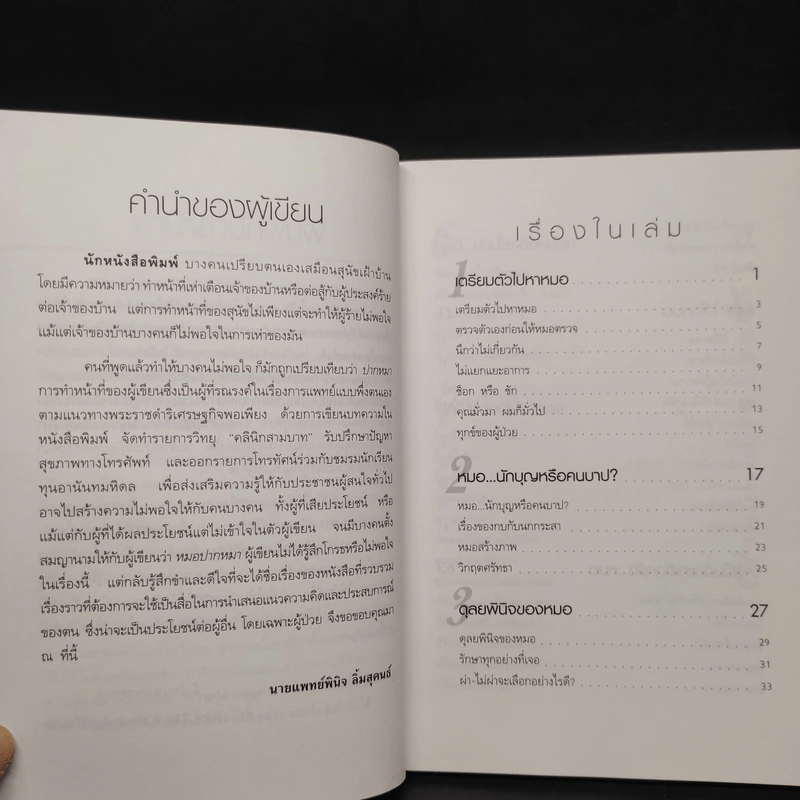 คำนำของผู้เขียน
นักหนังสือพิมพ์ บางคนเปรียบตนเองเสมือนสุนัขเฝ้าบ้าน
โดยมีความหมายว่า ทำหน้าที่เห่าเตือนเจ้าของบ้านหรือต่อสู้กับผู้ประสงค์ร้าย
ต่อเจ้าของบ้าน แต่การทำหน้าที่ของสุนัขไม่เพียงแต่จะทำให้ผู้ร้ายไม่พอใจ
แม้แต่เจ้าของบ้านบางคนก็ไม่พอใจในการเห่าของมัน
คนที่พูดแล้วทำให้บางคนไม่พอใจ ก็มักถูกเปรียบเทียบว่า ปากหมา
การทำหน้าที่ของผู้เขียนซึ่งเป็นผู้ที่รณรงค์ในเรื่องการแพทย์แบบพึ่งตนเอง
ตามแนวทางพระราชดำริเศรษฐกิจพอเพียง ด้วยการเขียนบทความใน
หนังสือพิมพ์ จัดทำรายการวิทยุ “คลินิกสามบาท” รับปรึกษาปัญหา
สุขภาพทางโทรศัพท์ และออกรายการโทรทัศน์ร่วมกับชมรมนักเรียน
ทุนอานันทมหิดล เพื่อส่งเสริมความรู้ให้กับประชาชนผู้สนใจทั่วไป
อาจไปสร้างความไม่พอใจให้กับคนบางคน ทั้งผู้ที่เสียประโยชน์ หรือ
แม้แต่กับผู้ที่ได้ผลประโยชน์แต่ไม่เข้าใจในตัวผู้เขียน จนมีบางคนตั้ง
สมญานามให้กับผู้เขียนว่า หมอปากหมา ผู้เขียนไม่ได้รู้สึกโกรธหรือไม่พอใจ
ในเรื่องนี้ แต่กลับรู้สึกขำและดีใจที่จะได้ชื่อเรื่องของหนังสือที่รวบรวม
เรื่องราวที่ต้องการจะใช้เป็นสื่อในการนำเสนอแนวความคิดและประสบการณ์
ของตน ซึ่งน่าจะเป็นประโยชน์ต่อผู้อื่น โดยเฉพาะผู้ป่วย จึงขอขอบคุณมา
ณ ที่นี้
นายแพทย์พินิจ ลิ้มสุคนธ์
เรื่องในเล่ม
1 เตรียมตัวไปหาหมอ 1
เตรียมตัวไปหาหมอ 3
ตรวจตัวเองก่อนให้หมอตรวจ 5
นึกว่าไม่เกี่ยวกัน 7
ไม่แยกแยะอาการ 9
ช็อก หรือ ชัก 11
คุณมั่วมา ผมก็มั่วไป 13
ทุกข์ของผู้ป่วย 15
2 หมอ...นักบุญหรือคนบาป? 17
หมอ...นักบุญหรือคนบาป? 19
เรื่องของกบกับนกกระสา 21
หมอสร้างภาพ 23
วิกฤตศรัทธา 25
3 ดุลยพินิจของหมอ 27
ดุลยพินิจของหมอ 29
รักษาทุกอย่างที่เจอ 31
ผ่า-ไม่ผ่าจะเลือกอย่างไรดี? 33